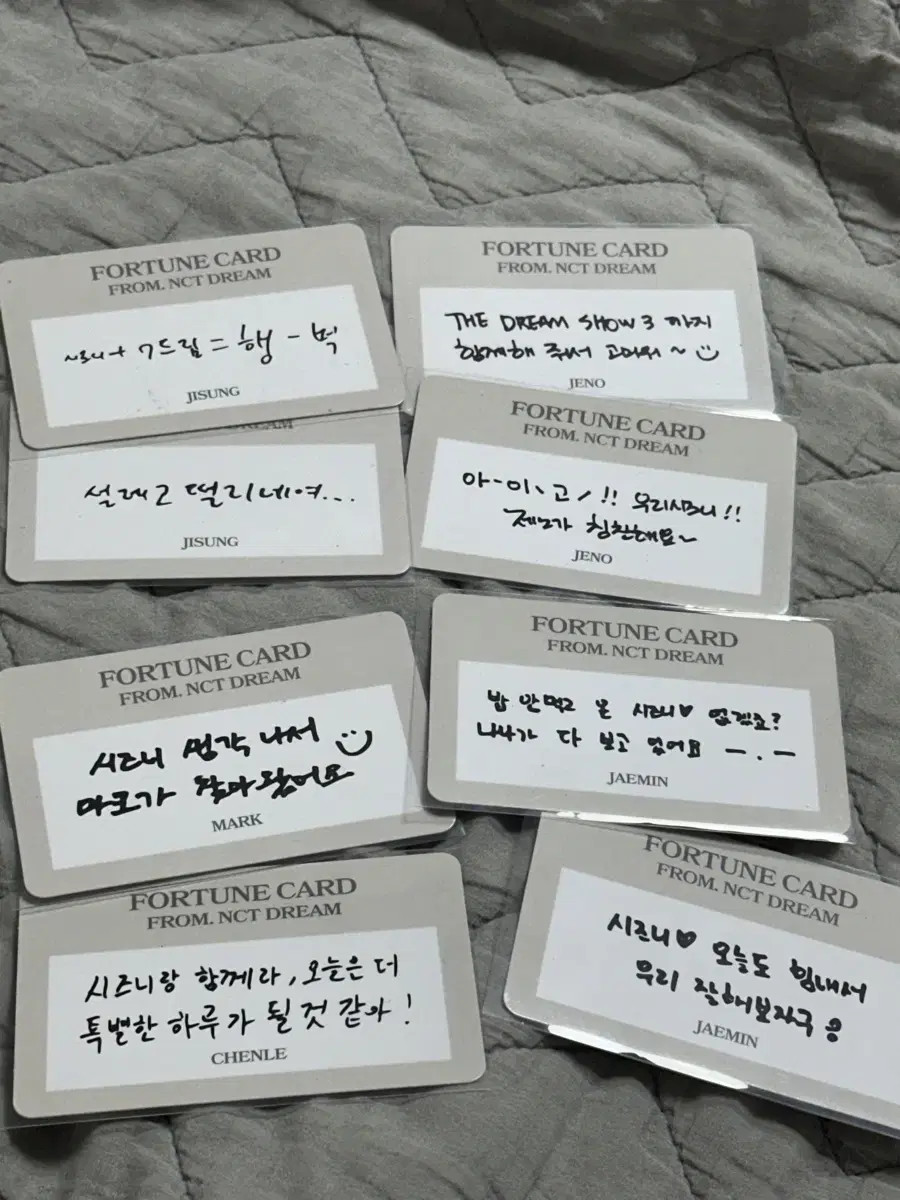 FORTUNE CARD
FROM. NCT DREAM
시즈니 + 7드림 = 행-벅
JISUNG
FORTUNE CARD
FROM. NCT DREAM
THE DREAM SHOW 3 까지
함께해 주서 고마워~
JENO
DREAM
설레고 떨리네여...
JISUNG
FORTUNE CARD
FROM. NCT DREAM
아-이、고/!! 우리시즈니!!
제노가 칭찬해요~
JENO
FORTUNE CARD
FROM. NCT DREAM
시즈니 생각 나서
마크가 찾아 왔어요
MARK
FORTUNE CARD
FROM. NCT DREAM
밥 안먹고 온 시즈니♥ 없겠죠?
나나가 다 보고 있어요 ㅡ.ㅡ
JAEMIN
FORTUNE CARD
FROM. NCT DREAM
시즈니랑 함께라, 오늘은 더
특별한 하루가 될 것 같아!
CHENLE
FORTUNE CARD
FROM. NCT DREAM
시즈니♥ 오늘도 힘내서
우리 잘해보자구
JAEMIN